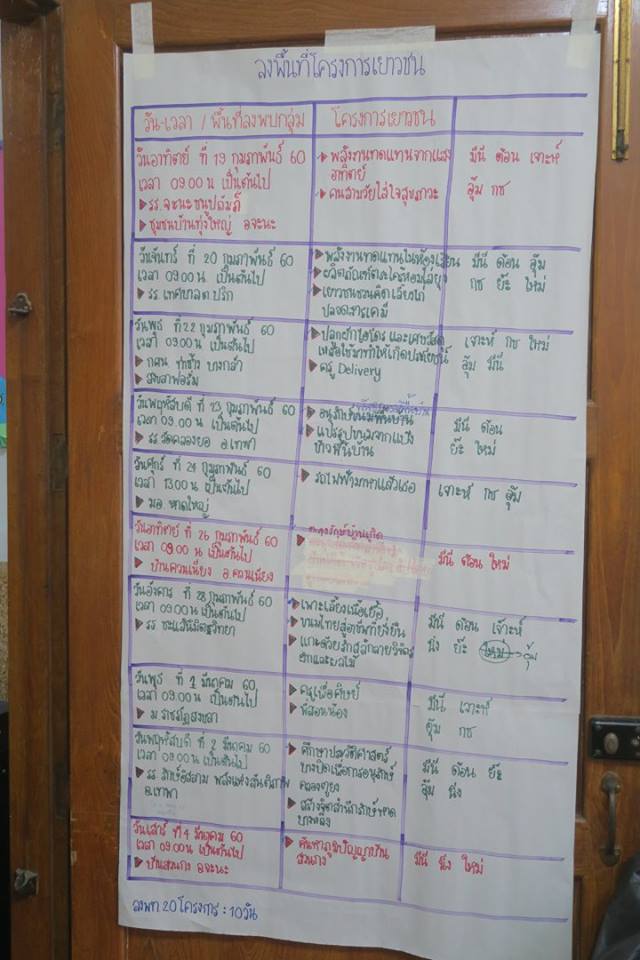 ลงพื้นที่โครงการเยาวชน
วัน-เวลา / พื้นที่ลงพบกลุ่ม
โครงการเยาวชน
วันอาทิตย์ ที่ 19 กุมภาพันธ์ 60
เวลา 09.00 น เป็นต้นไป
รร.จะนะชนูปถัมภ์
ชุมชนบ้านทุ่งใหญ่ อ.จะนะ
พลังงานทดแทนจากแสง
อาทิตย์
คนสามวัยใส่ใจสุขภาวะ
มีนี่ ต้อน เจาะห์
อุ้ม กช
วันจันทร์ ที่ 20 กุมภาพันธ์ 60
เวลา 09.00 น. เป็นต้นไป
รร เทศบาล ต ปริก
พลังงานทดแทนในห้องเรียน
ผลิตภัณฑ์ตะไคร้หอมไล่ยุง
เยาวชนชวนคิดเลี้ยงไก่
ปลอดสารเคมี
มีนี่ ต้อน อุ้ม
กช ย๊ะ ใหม่
วันพุธ ที่ 22 กุมภาพันธ์ 60
เวลา 09.00 น เป็นต้นไป
กศน ท่าช้าง บางกล่ำ
สงขลาฟอรั่ม
ปลูกผักไฮโดร และเศษวัสดุ
เหลือใช้มาทำให้เกิดประโยชน์
ครู Delivery
เจาะห์ กช ใหม่
อุ้ม มีนี่
วันพฤหัสบดี ที่ 23 กุมภาพันธ์ 60
เวลา 09.00 น. เป็นต้นไป
รร วัดคลองยอ อ.เทพา
อนุรักษ์ขนมพื้นบ้าน
แปรรูปขนมจากแป้ง
ข้าวพื้นบ้าน
มีนี่ ต้อน
ย๊ะ ใหม่
วันศุกร์ ที่ 24 กุมภาพันธ์ 60
เวลา 13.00 น เป็นต้นไป
มอ. หาดใหญ่
รถไฟฟ้ามาหาแล้วเธอ
เจาะห์ กช อุ้ม
วันอาทิตย์ ที่ 26 กุมภาพันธ์ 60
เวลา 09.00 น เป็นต้นไป
บ้านควนเนียง อ.ควนเนียง
มีนี่ ต้อน ใหม่
วันอังคาร ที่ 28 กุมภาพันธ์ 60
เวลา 09.00 น เป็นต้นไป
รร ชะแล้นิมิตวิทยา
เพาะเลี้ยงเนื้อเยื่อ
ขนมไทยสู่อาชีพที่ยั่งยืน
ผักและผลไม้
มีนี่ ต้อน เจ้าะห์
นิ่ง ย๊ะ ใหม่ อุ้ม
วันพุธ ที่ 1 มีนาคม 60
เวลา 09.00 น เป็นต้นไป
ม ราชภัฏสงขลา
ครูเพื่อศิษย์
พี่สอนน้อง
มีนี่ เจาะห์
อุ้ม กช
วันพฤหัสบดี ที่ 2 มีนาคม 60
เวลา 09.00 น เป็นต้นไป
รร รักษ์อิสลาม พลังแห่งสันติภาพ
อ.เทพา
ศึกษาประวัติศาสตร์
เพื่อการอนุรักษ์
คลองตูยง
สร้างจิตสำนึกรักษ์หาด
บางหลิง
มีนี่ ต้อน ย๊ะ
อุ้ม นิ่ง
วันเสาร์ ที่ 4 มีนาคม 60
เวลา 09.00 น เป็นต้นไป
บ้านสวนกง อ.จะนะ
ค้นหาภูมิปัญญาบ้าน
สวนกง
มีนี่ นิ่ง ใหม่
ลงพท 20 โครงการ : 10 วัน